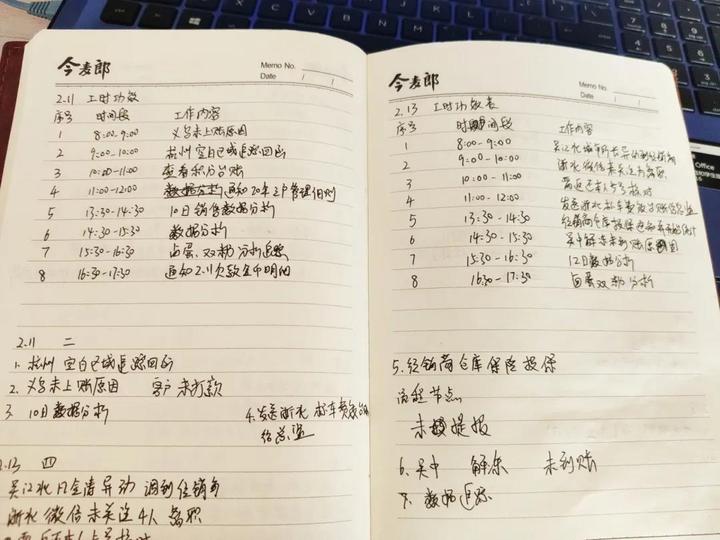 今麦郎
Memo No.
Date / /
2.11 工时功效
序号 时间段 工作内容
1 8:00-9:00 义乌未上账原因
2 9:00-10:00 杭州空白区域追踪回函
3 10:00-11:00 查看积分台账
4 11:00-12:00 通知20年客户管理细则
5 13:30-14:30 10日销售数据分析
6 14:30-15:30 数据分析
7 15:30-16:30 卤蛋、双粉分析追踪
8 16:30-17:30 通知2.11欠款全年明细
2.11 二
1. 杭州空白区域追踪回函
2. 义乌未上账原因 客户未打款
3. 10日数据分析 4.发送浙北 标车费
给总监
2.13 四
吴江北 异动 调到经销
浙北 微信未关注4人 离职
今麦郎
Memo No.
Date / /
2.13 工时功效表
序号 时间段 工作内容
1 8:00-9:00 吴江北
2 9:00-10:00 浙北微信未关注 离职
3 10:00-11:00 核对
4 11:00-12:00 发送浙北标车费 给总监
5 13:30-14:30 经销商仓库投保
6 14:30-15:30 吴中解冻未到账原因
7 15:30-16:30 12日数据分析
8 16:30-17:30 卤蛋双粉分析
5.经销商仓库保险投保
流程节点
未提报
6.吴中 解冻 未到账
7.数据追踪
Office